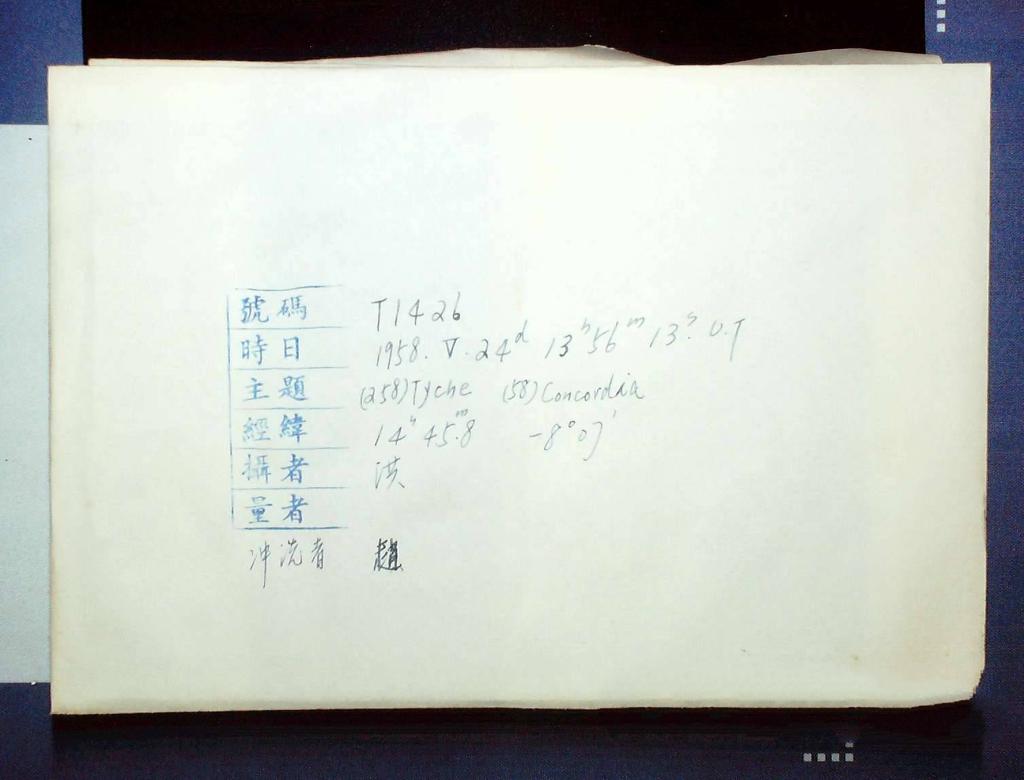 號碼 T1426
時日 1958. V. 24ᵈ 13ʰ56ᵐ13ˢ. U.T
主題 (258)Tyche (58)Concordia
經緯 14ʰ45ᵐ.8 -8°07'
攝者 洪
量者
冲洗者 趙